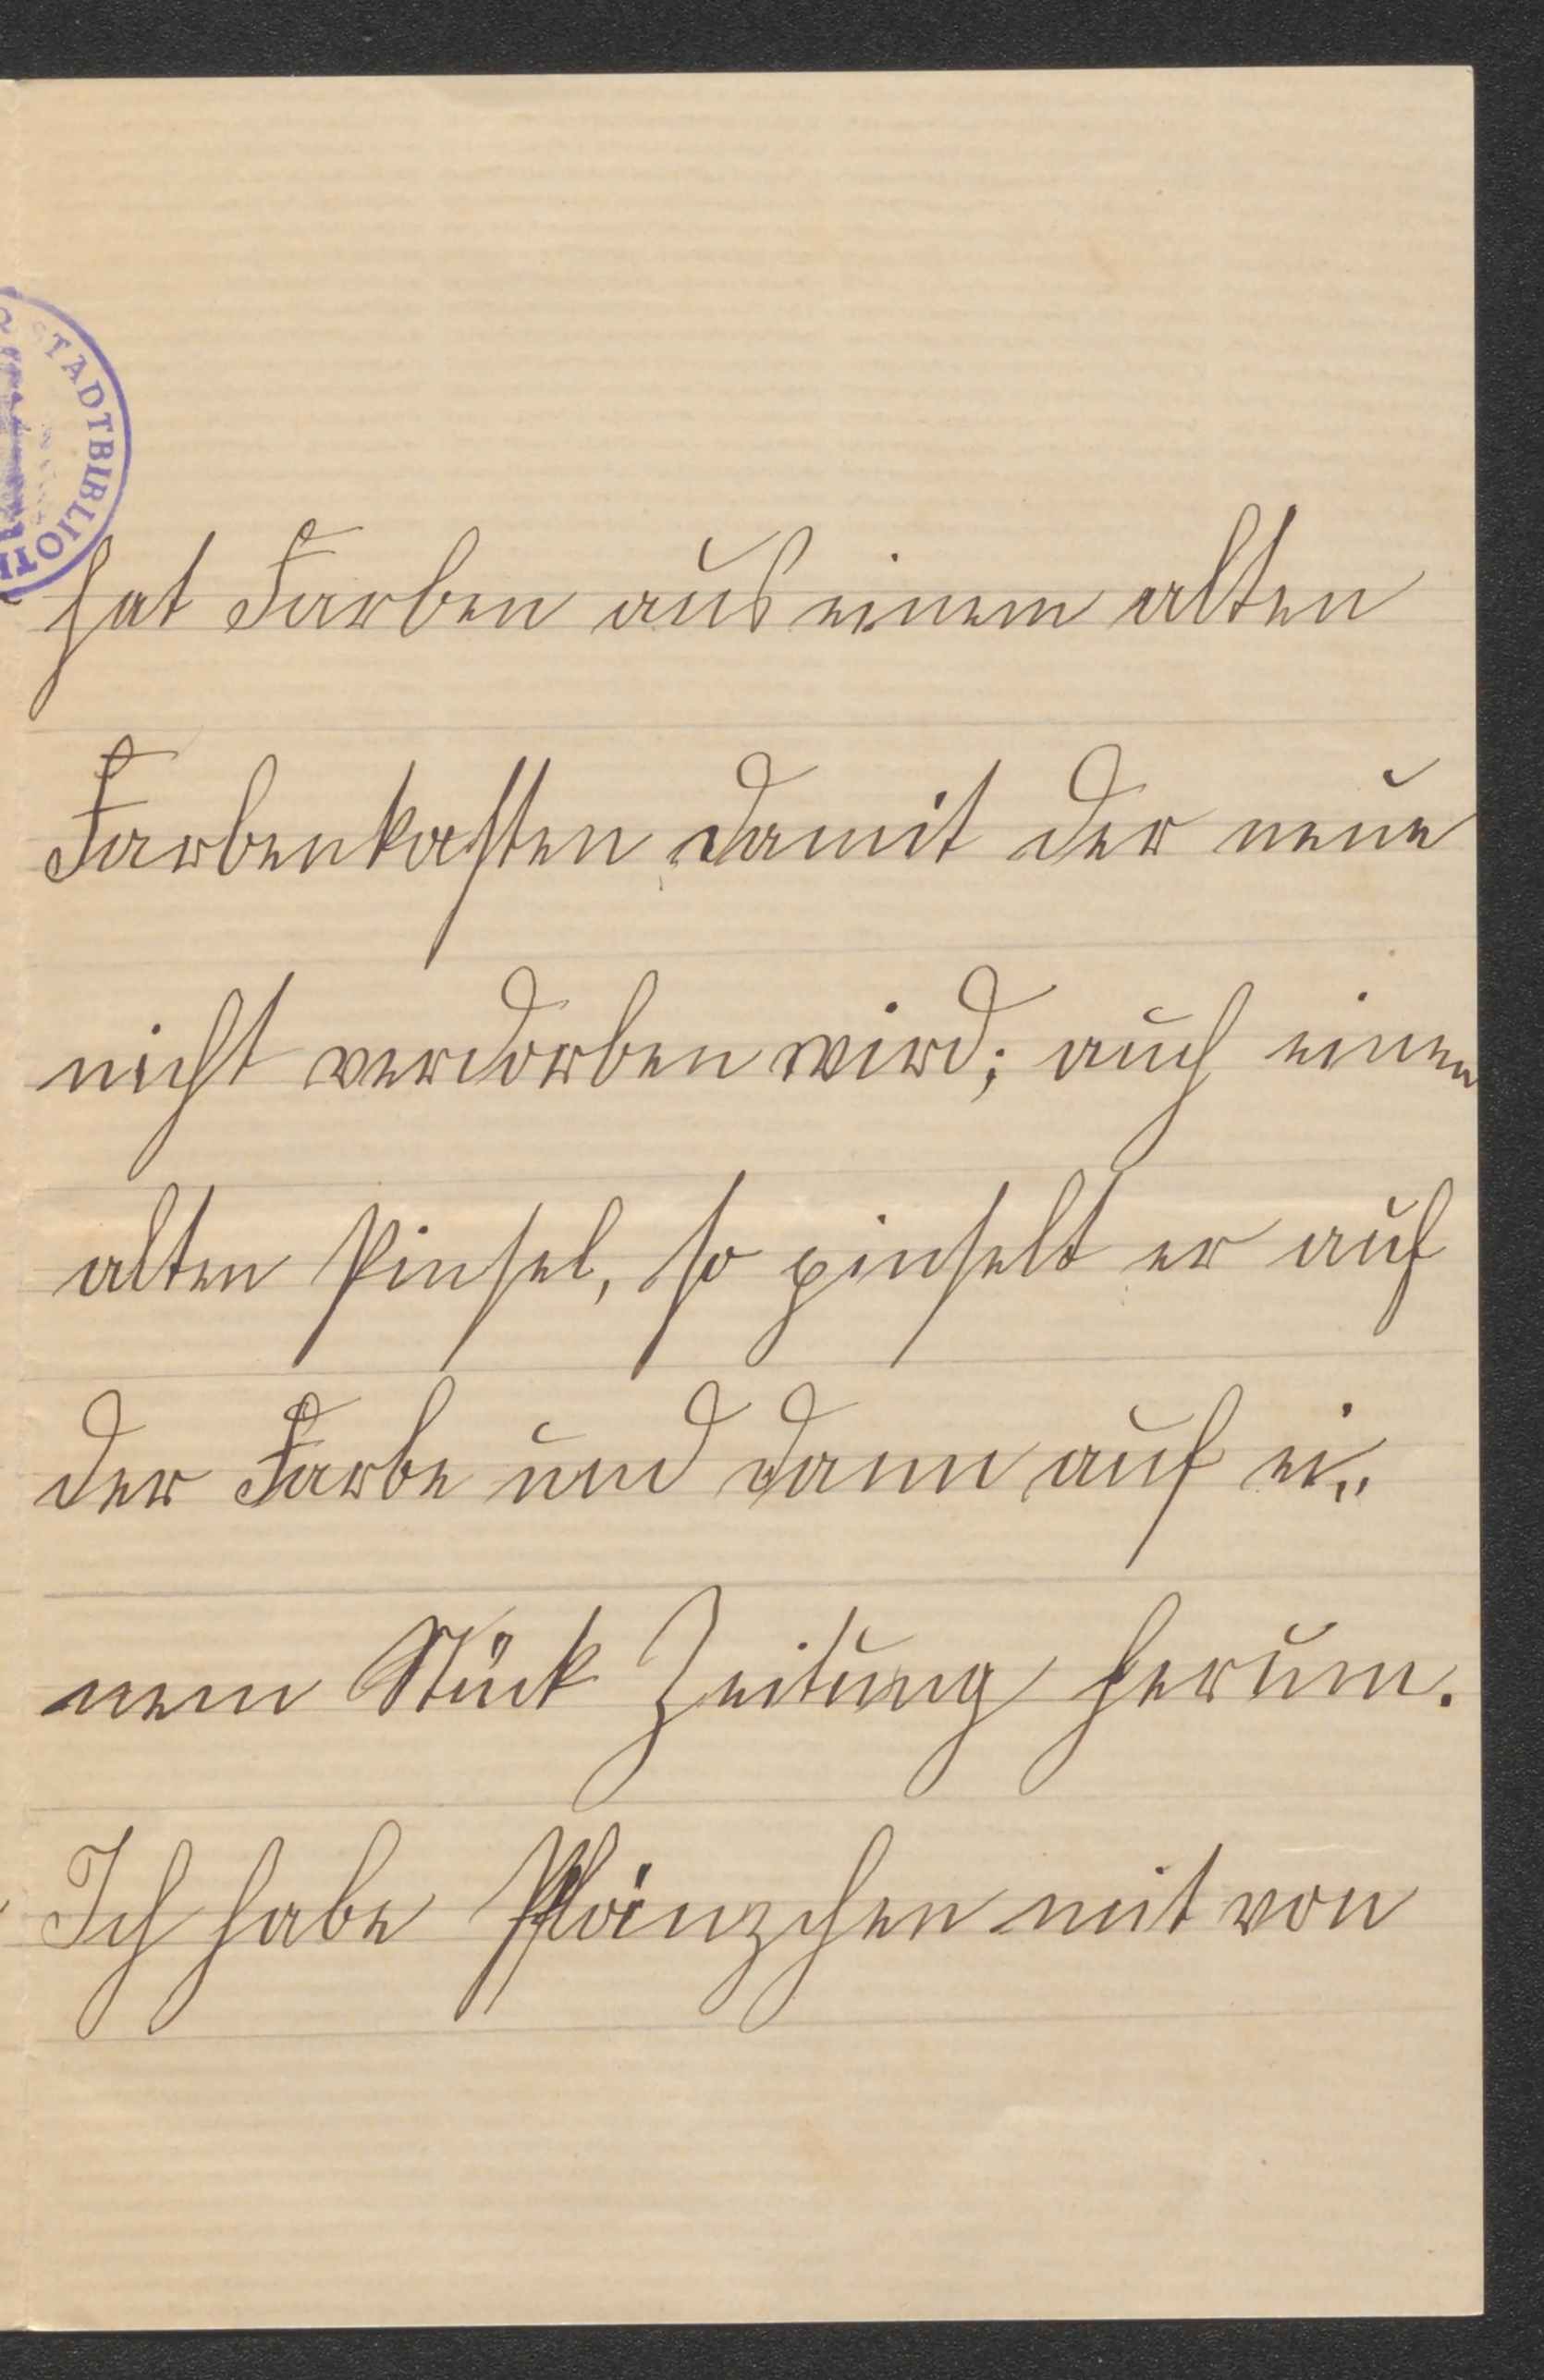 STADTBIBLIOT
hat Farben aus einem alten
Farbenkasten damit der neue
nicht verdorben wird; auch einen
alten Pinsel, so pinselt er auf
der Farbe und dann auf ei„
nem Stück Zeitung herum.
Ich habe Pflänzchen mit von